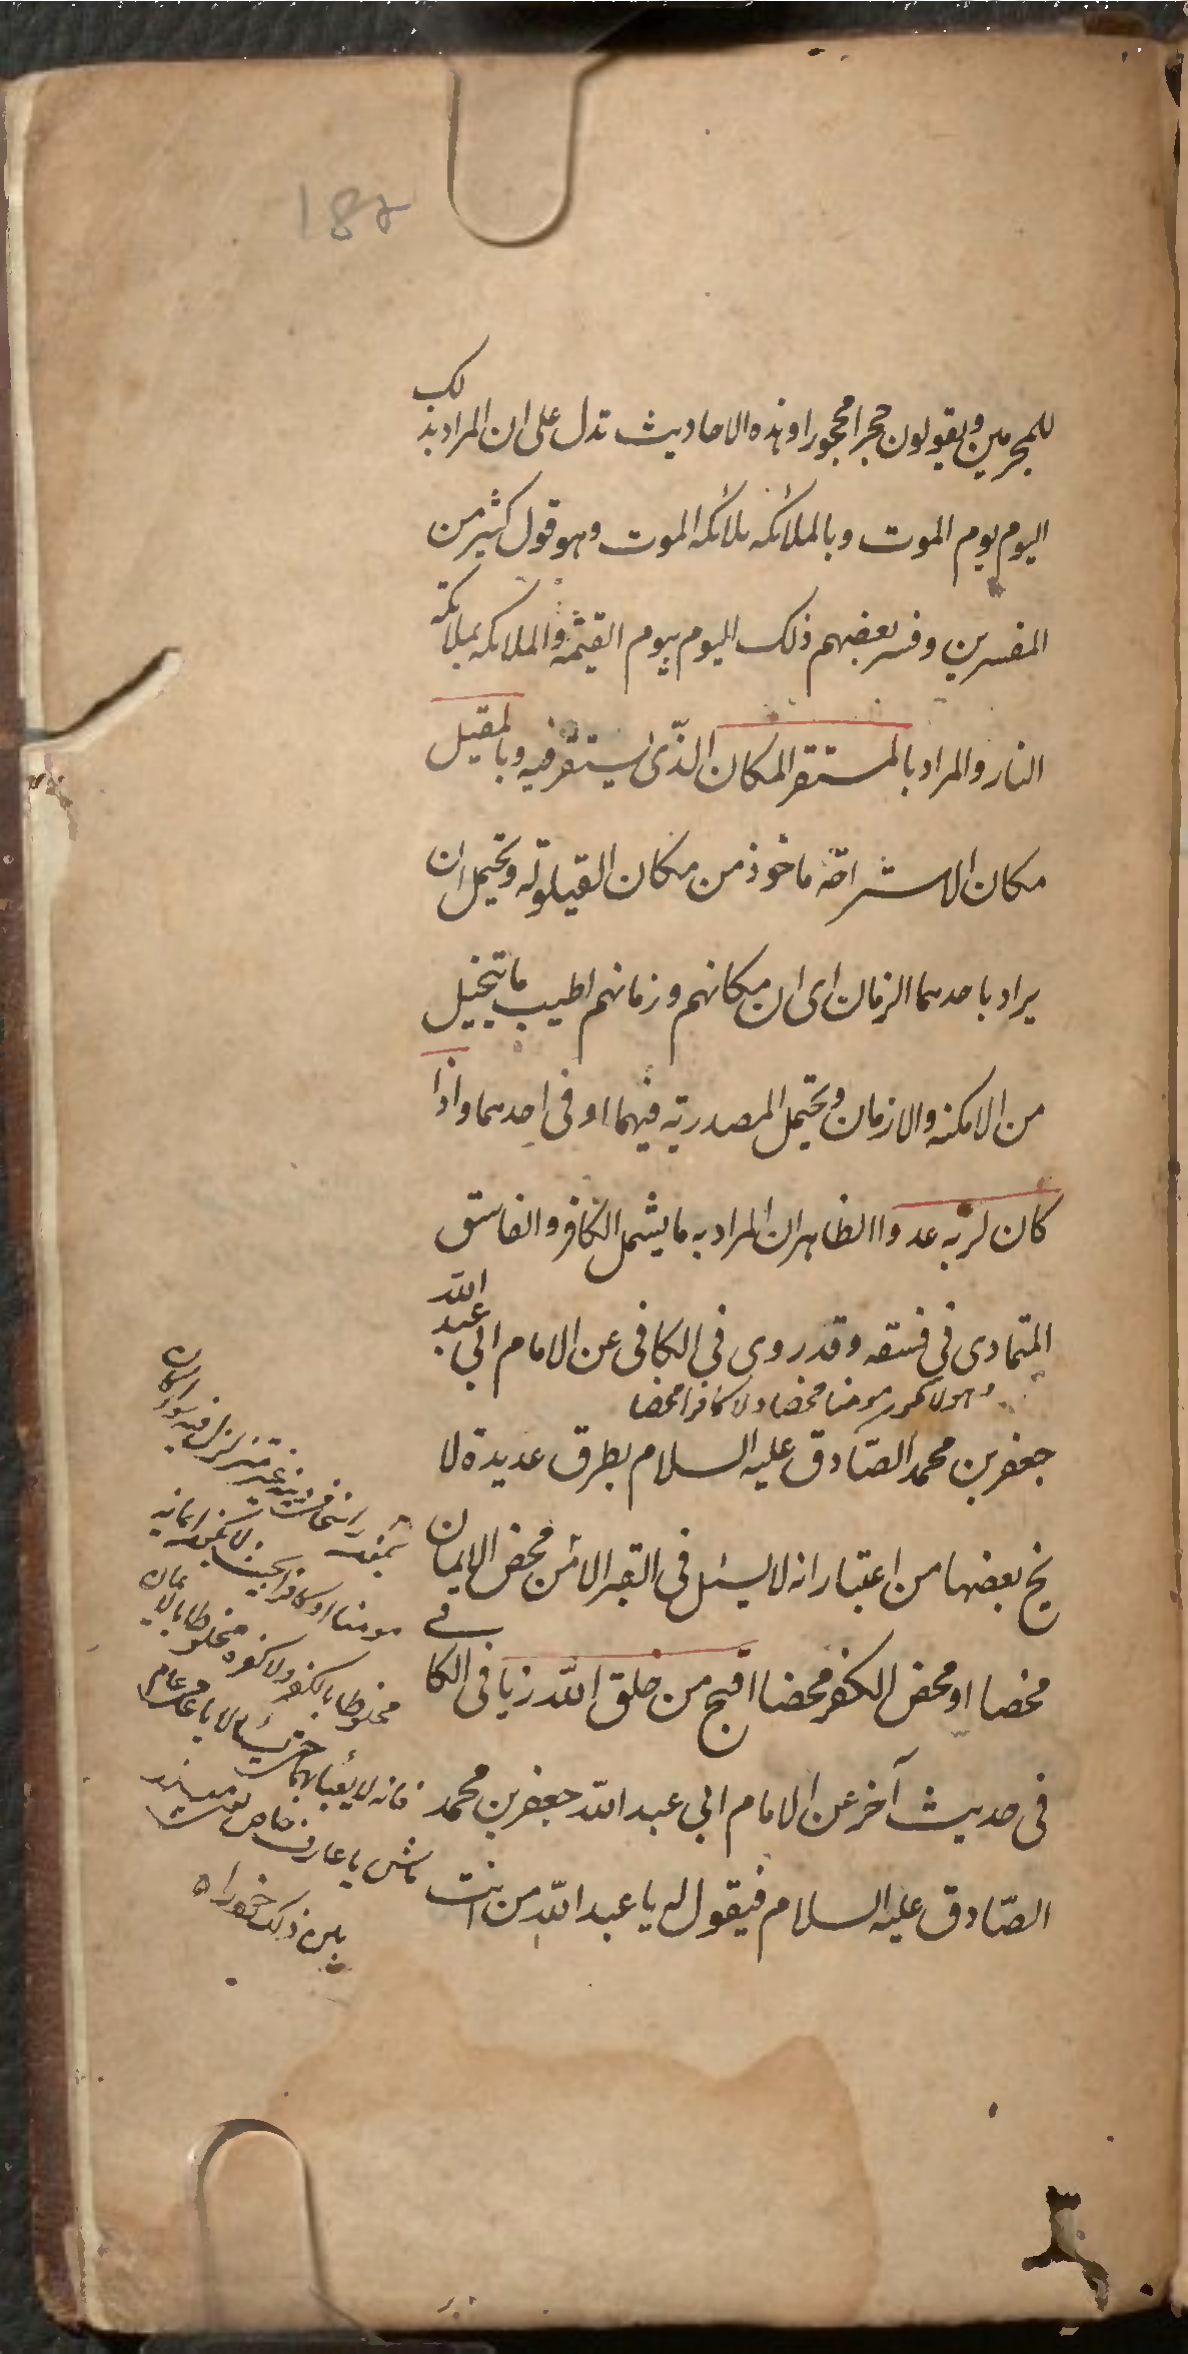 182
للمجرمين ويقولون حجرا محجورا وهذه الاحاديث تدل على ان المراد بذلك
اليوم يوم الموت وبالملائكه ملائكه الموت وهو قول كثير من
المفسرين وفسر بعضهم ذلك اليوم بيوم القيمة والملائكه بملائكة
النار والمراد بالمستقر المكان الذى يستقر فيه وبالمقيل
مكان الاستراحة ماخوذ من مكان القيلولة ويحتمل ان
يراد باحدهما الزمان اى ان مكانهم وزمانهم اطيب ما يتخيل
من الامكنه والازمان ويحتمل المصدرية فيهما او فى احدهما واذا
كان لربه عدوا الظاهر ان المراد به ما يشمل الكافر والفاسق
المتمادى فى فسقه وقد روى فى الكافى عن الامام ابي عبد الله
مومنا محضا ولا كافرا محضا
جعفر بن محمد الصادق عليه السلام بطرق عديدة لا
يخ بعضها من اعتبار انه لا يسئل فى القبر الا من محض الايمان
محضا او محض الكفر محضا اقبح من خلق الله زيا فى الكافے
فى حديث آخر عن الامام ابي عبد الله جعفر بن محمد
الصّادق عليه السلام فيقول له يا عبد الله من انت
مومنا او كافرا بحيث لا يكون ايمانه
مخلوطا بالكفر ولا كفره مخلوطا بالايمان
فانه لا يعبأ بهما
باش يا عارف خاص
بين ذلك